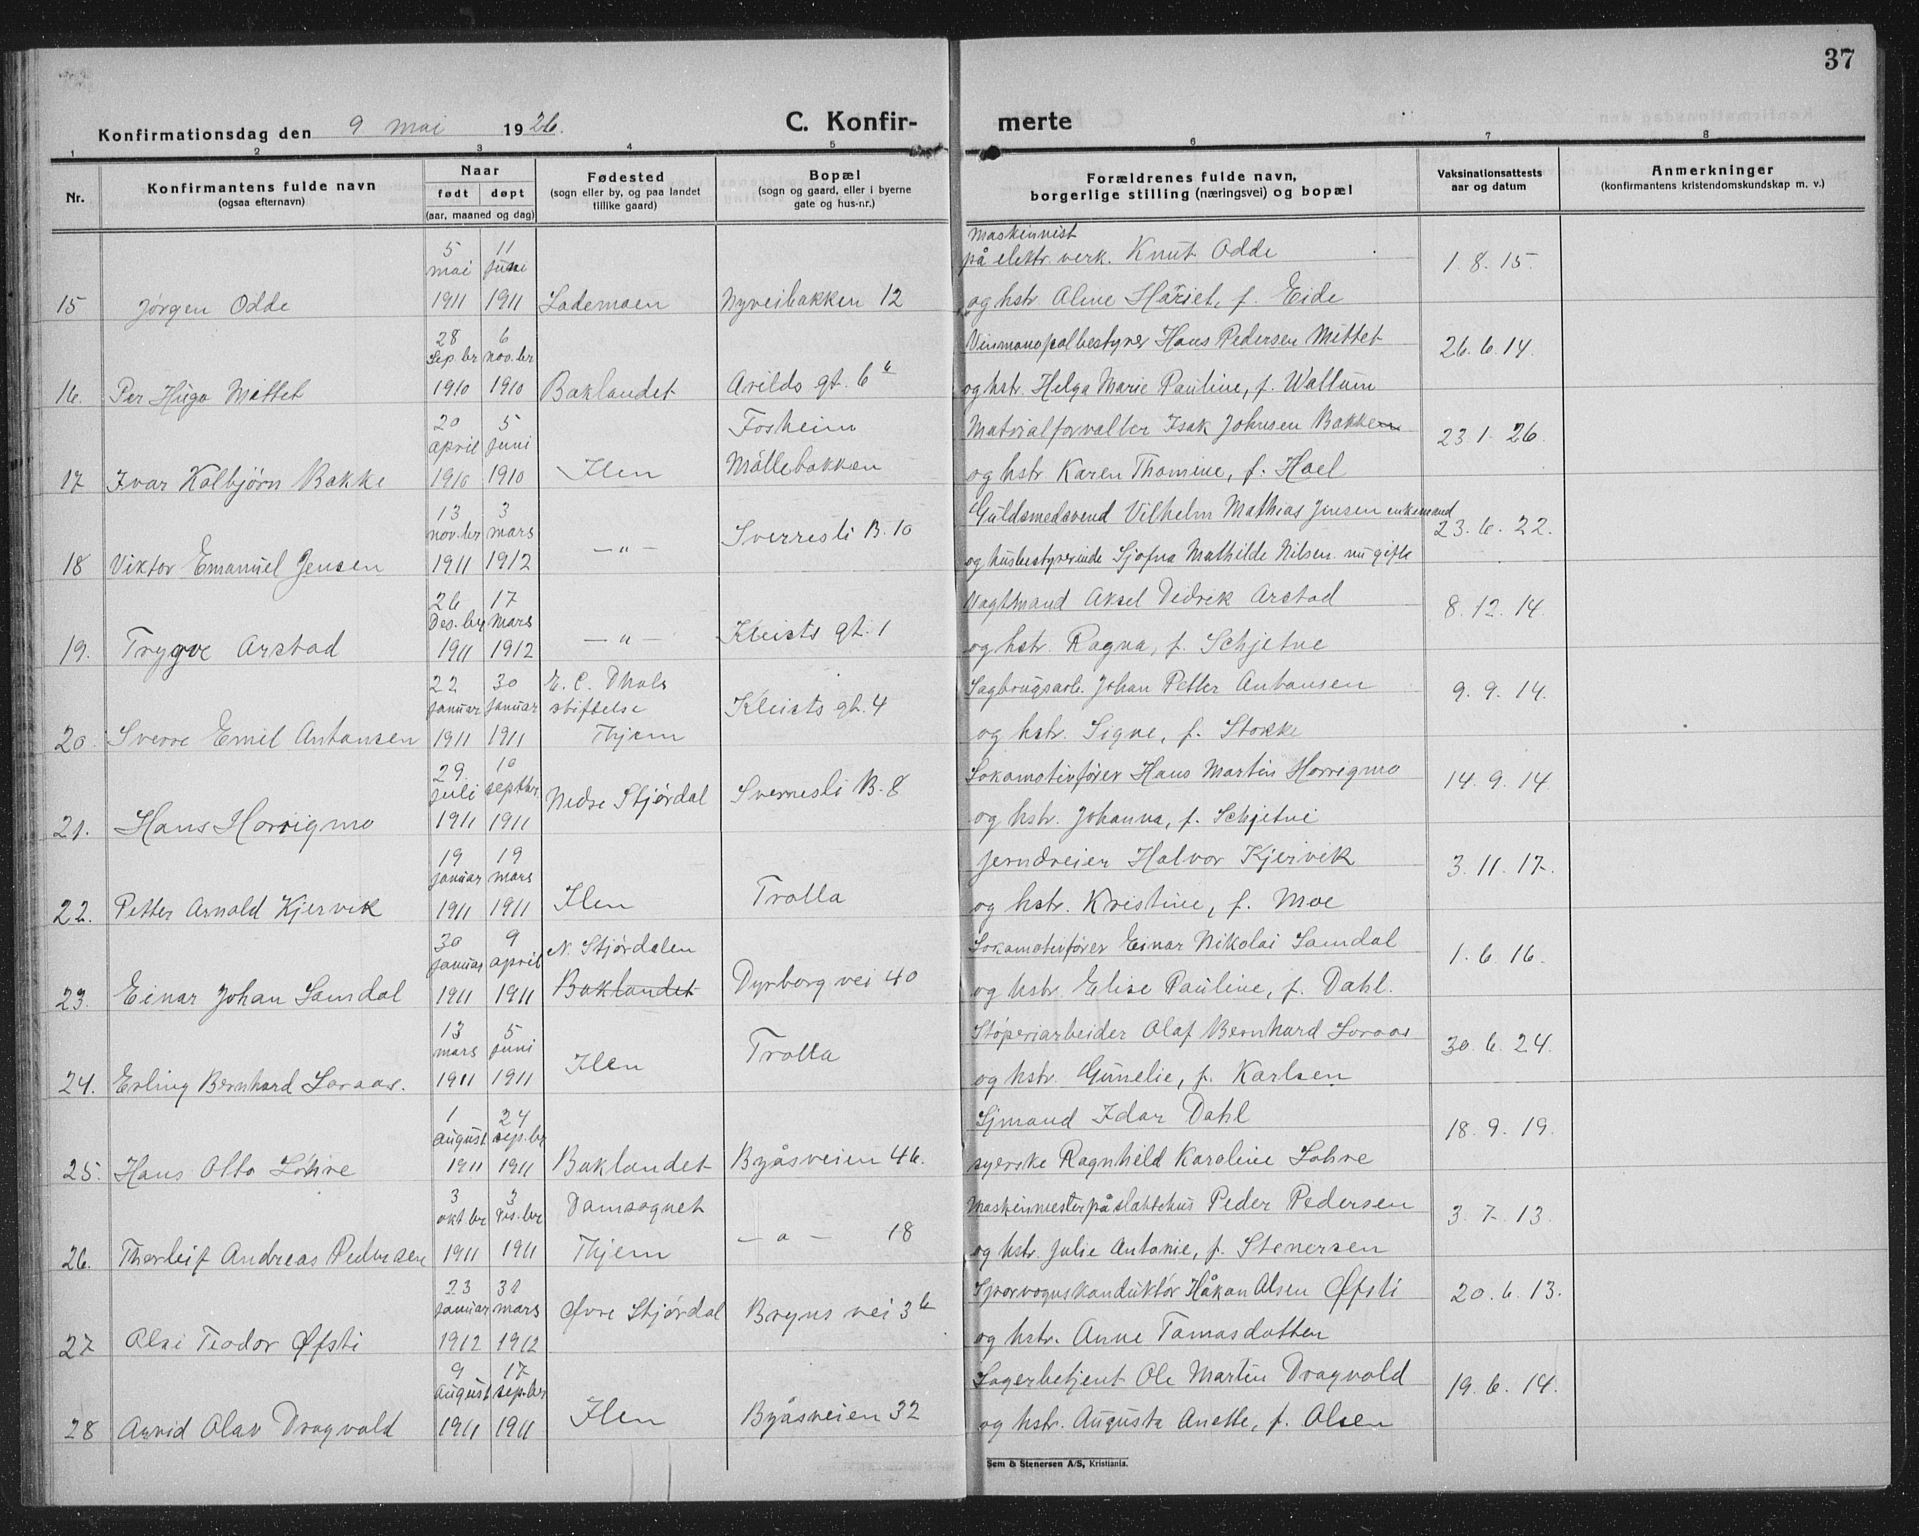 37
Konfirmationsdag den 9 mai 1926.
C. Konfirmerte
1 2 3 4 5 6 7 8
Nr.
Konfirmantens fulde navn
(ogsaa efternavn)
Naar
født døpt
(aar, maaned og dag)
Fødested
(sogn eller by, og paa landet
tillike gaard)
Bopæl
(sogn og gaard, eller i byerne
gate og hus-nr.)
Forældrenes fulde navn,
borgerlige stilling (næringsvei) og bopæl
Vaksinationsattests
aar og datum
Anmerkninger
(konfirmantens kristendomskundskap m. v.)
5 11 Maskinnist
mai juni på elektr. verk. Knut Odde 1. 8. 15.
15 Jørgen Odde 1911 1911 Lademoen Nyveibakken 12 og hstr. Aline Hariet, f. Eide
28 6 Vinmonopolbestyrer Hans Pedersen Mittet
Sep.br nov.br 26. 6. 14.
16. Per Hugo Mittet 1910 1910 Baklandet Arilds gt. 6 og hstr. Helga Marie Pauline, f. Wallum
20 5 Fosheim Matrialforvalter Isak Johnsen Bakken
april juni 23. 1. 26.
17 Ivar Kolbjørn Bakke 1910 1910 Ilen Møllebakken og hstr. Karen Thomine, f. Hoel
13 3 Guldsmedsvend Vilhelm Mathias Jensen enkemand
nov.br mars Sverresli B. 10 23. 6. 22.
18 Viktor Emanuel Jensen 1911 1912 — " — og husbestyrerinde Sjofna Mathilde Nilsen nu gifte
26 17 Vagtmand Aksel Didrek Arstad
Des.br Mars Kleists gt. 1 8. 12. 14.
19. Trygve Arstad 1911 1912 — " — og hstr. Ragna, f. Schjetne
22 30 E. C. Dhals Sagbrugsarb. Johan Petter Antonsen
januar januar stiftelse Kleists gt. 4 9. 9. 14.
20. Sverre Emil Antonsen 1911 1911 Thjem og hstr. Signe, f. Stokke
29. 10 Lokomotivfører Hans Martin Horrigmo
juli septbr. Nedre Stjørdal Sverresli B. 8 14. 9. 14.
21. Hans Horrigmo 1911 1911 og hstr. Johanna, f. Schjetne
19 19 jerndreier Halvor Kjervik
januar mars Trolla 3. 11. 17.
22. Petter Arnold Kjervik 1911 1911 Ilen og hstr. Kristine, f. Moe
30 9 N. Stjørdalen Lokomotivfører Einar Nikolai Samdal
januar april Dyrborg vei 40 1. 6. 16.
23. Einar Johan Samdal 1911 1911 Baklandet og hstr. Elise Pauline, f. Dahl.
13 5 Støperiarbeider Olaf Bernhard Soraas
mars juni Ilen Trolla 30. 6. 24.
24. Erling Bernhard Soraas. 1911 1911 og hstr. Gunelie, f. Karlsen
1 24 Sjmand Idar Dahl
August sep.br 18. 9. 19.
25. Hans Otto Lohne 1911 1911 Baklandet Byåsveien 46. syerske Ragnhild Karoline Lohne
3 3 Domsognet Maskinmester på slaktehus Peder Pedersen
okt.br Des.br — " — 18 3. 7. 13.
26. Thorleif Andreas Pedersen 1911 1911 Thjem og hstr. Julie Antonie, f. Stenersen
23 31 Sporvognskonduktør Håkon Olsen Øfsti
januar mars Øvre Stjørdal Bryns vei 3b 20. 6. 13.
27 Olai Teodor Øfsti 1912 1912 og hstr. Anne Tomasdotten
9 17 Lagerbetjent Ole Martin Dragvold
August sep.br 19. 6. 14.
28 Arvid Olav Dragvold 1911 1911 Ilen Byåsveien 32 og hstr. Augusta Anette, f. Olsen
Sem & Stenersen A/S, Kristiania.